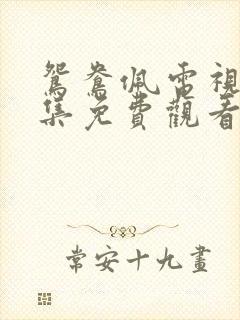 鴛鴦佩電視
集免費觀看
常安十九畫